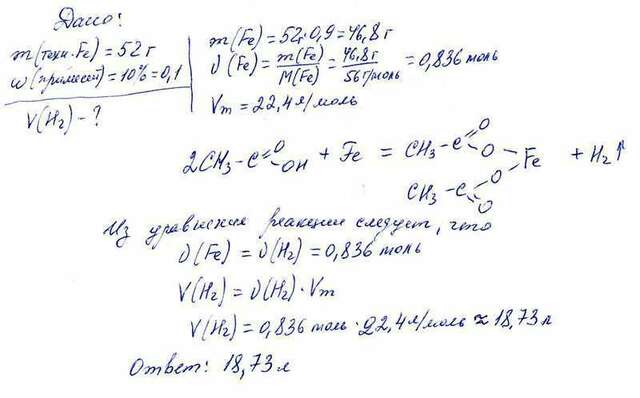 Дано:
m(техн. Fe) = 52 г
ω(примесей) = 10% = 0,1
V(H₂) - ?
m(Fe) = 52·0,9 = 46,8 г
ν(Fe) = m(Fe)/M(Fe) = 46,8 г/56 г/моль = 0,836 моль
Vm = 22,4 л/моль
2CH₃-C(=O)OH + Fe = (CH₃-C(=O)O)(CH₃-C(=O)O)Fe + H₂↑
Из уравнения реакции следует, что
ν(Fe) = ν(H₂) = 0,836 моль
V(H₂) = ν(H₂)·Vm
V(H₂) = 0,836 моль · 22,4 л/моль ≈ 18,73 л
Ответ: 18,73 л